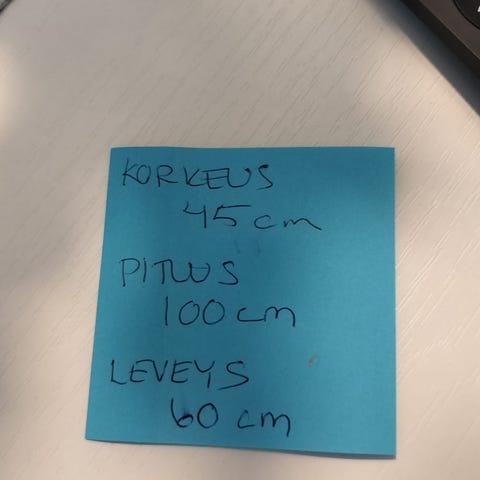 KORKEUS
45 cm
PITUUS
100 cm
LEVEYS
60 cm